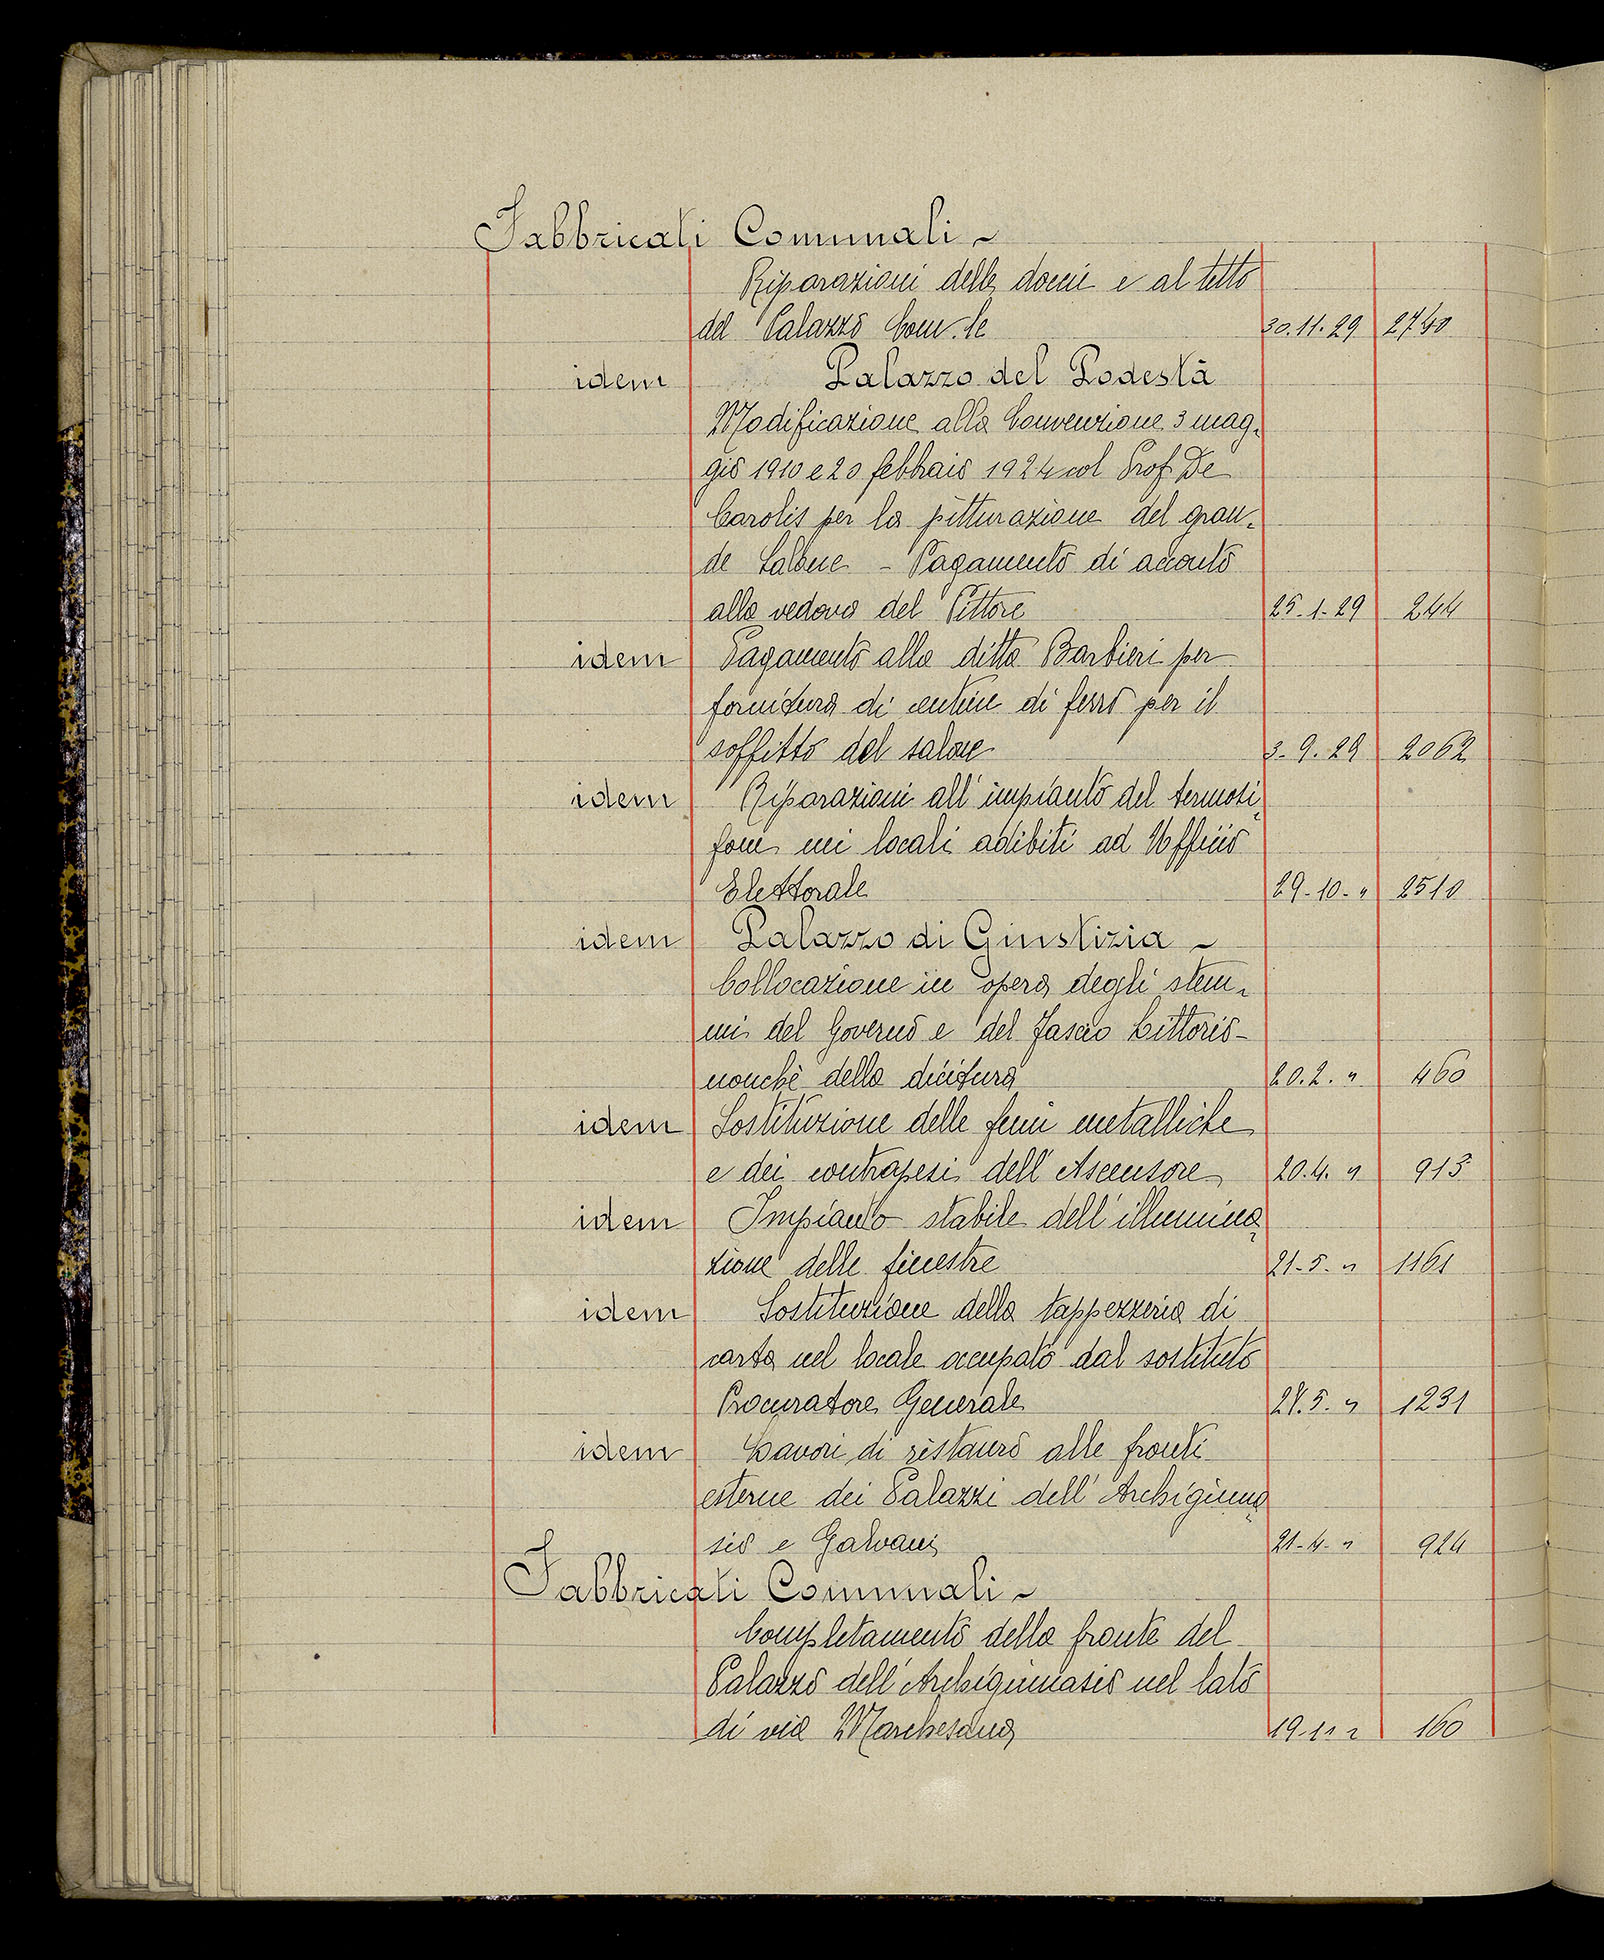 Fabbricati Comunali ~
Riparazioni delle docci e al tetto
del Palazzo Com.le 30.11.29 2740
idem Palazzo del Podestà
Modificazione alla Convenzione 3 mag-
gio 1910 e 20 febbraio 1924 col Prof. De
Carolis per la pitturazione del gran-
de Salone - Pagamento di acconto
alla vedova del Pittore 25-1-29 244
idem Pagamento alla ditta Barbieri per
fornitura di centine di ferro per il
soffitto del salone 3-9.29 2062
idem Riparazioni all'impianto del termosi-
fone nei locali adibiti ad Ufficio
Elettorale 29-10-" 2510
idem Palazzo di Giustizia ~
Collocazione in opera degli stem-
mi del Governo e del Fascio Littorio -
nonchè della dicitura 20.2. " 460
idem Sostituzione delle funi metalliche
e dei contrapesi dell'Ascensore 20.4. " 913
idem Impianto stabile dell'illumina-
zione delle finestre 21-5- " 1161
idem Sostituzione della tappezzeria di
carta nel locale occupato dal sostituto
Procuratore Generale 5. " 1231
idem Lavori di restauro alle fronti
esterne dei Palazzi dell'Archiginna-
sio e Galvani 21-4- " 924
Fabbricati Comunali ~
Completamento della fronte del
Palazzo dell'Archiginnasio nel lato
di via Marchesana 19-11 " 160